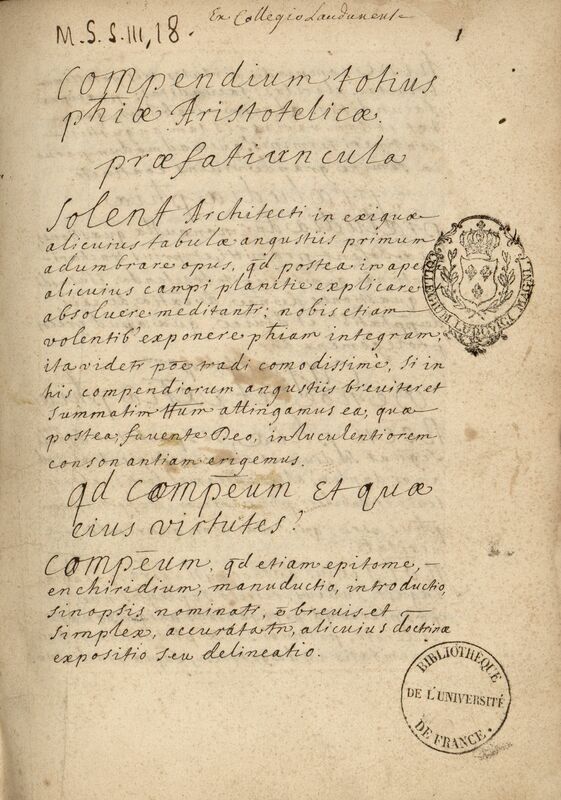 Ex Collegio Laudunensi
M.S.S. III, 18.
1
Compendium totius
phiæ Aristotelicæ.
præfatiuncula
Solent Architecti in exiguæ
alicuius tabulæ angustiis primum
adumbrare opus, qd postea in apertæ
alicuius campi planitie explicare
absoluere meditantr; nobis etiam
volentib' exponere phiam integram,
ita videtr poe tradi comodissimè, si in
his compendiorum angustiis breviter et
summatim ttum attingamus ea, quæ
postea, favente Deo, in luculentiorem
consonantiam erigemus.
qd compēum et quæ
eius virtutes?
Compēum, qd etiam epitome,
enchiridium, manuductio, introductio,
sinopsis nominatr, ē brevis et
simplex, accurata tn, alicuius doctrinæ
expositio seu delineatio.
COLLEGIUM LUDOVICI MAGNI
BIBLIOTHEQUE
DE L'UNIVERSITÉ
DE FRANCE.